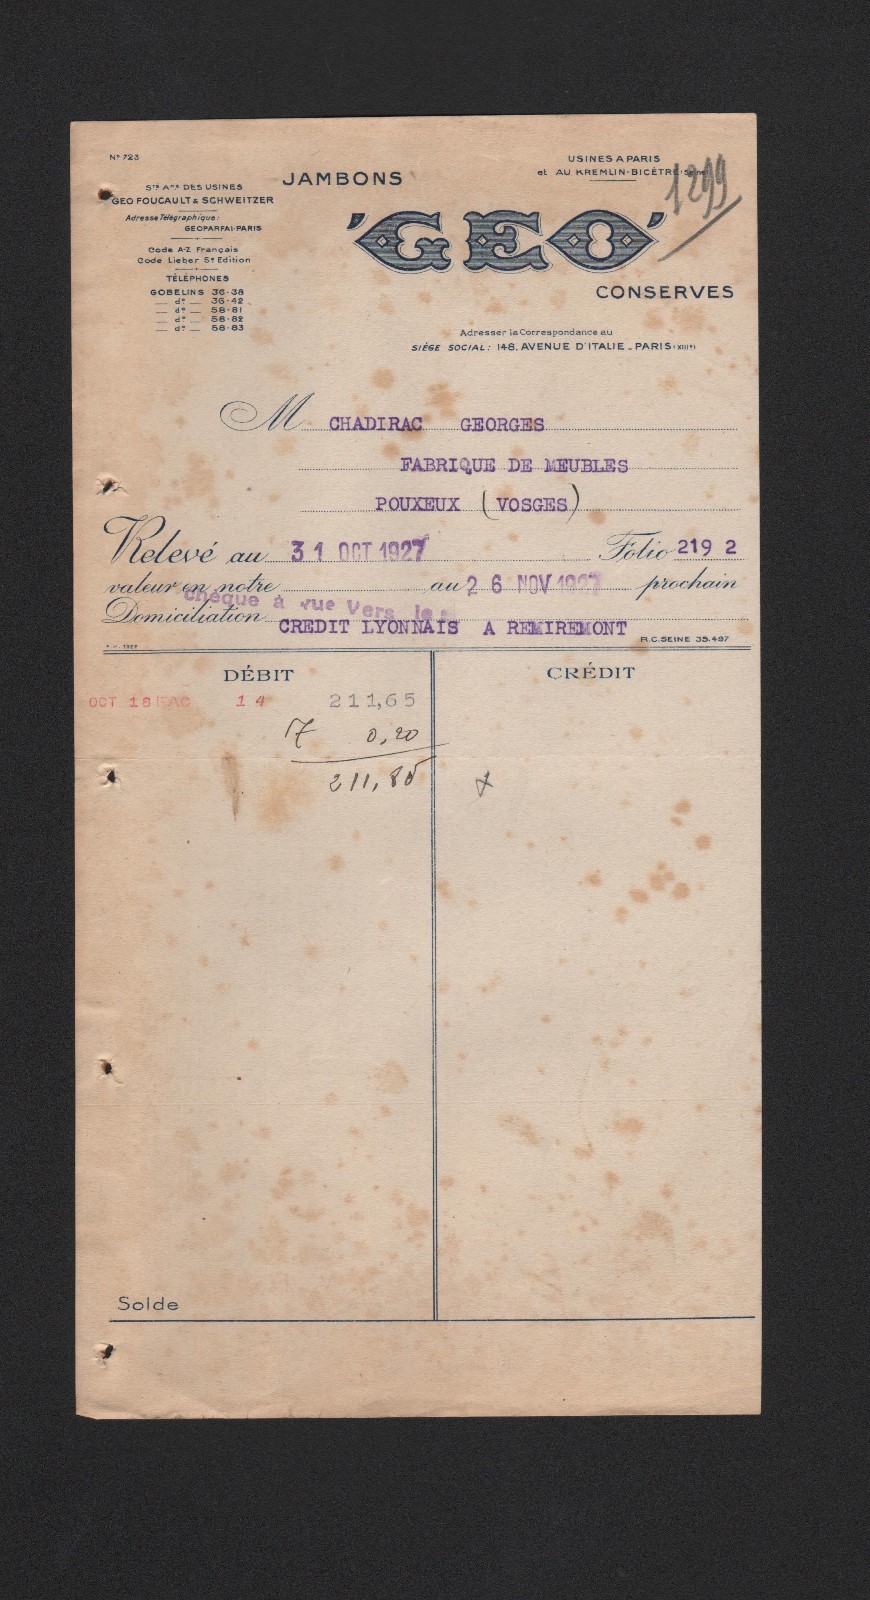 Nº 723
USINES A PARIS
et AU KREMLIN-BICÊTRE (Seine)
1299
JAMBONS
Sté Ame DES USINES
GEO FOUCAULT & SCHWEITZER
Adresse Télégraphique:
GEOPARFAI-PARIS
Code A-Z Français
Code Lieber 5e Edition
TÉLÉPHONES
GOBELINS 36-38
— do — 36-42
— do — 58-81
— do — 58-82
— do — 58-83
'GEO'
CONSERVES
Adresser la Correspondance au
SIÈGE SOCIAL: 148, AVENUE D'ITALIE - PARIS (XIIIe)
M CHADIRAC GEORGES
FABRIQUE DE MEUBLES
POUXEUX (VOSGES)
Relevé au 31 OCT 1927 Folio 219 2
valeur en notre au 26 NOV 1927 prochain
chèque à vue vers le
Domiciliation CREDIT LYONNAIS A REMIREMONT
R.C. SEINE 35.497
DÉBIT CRÉDIT
OCT 18 FAC 14 211,65
T 0,20
211,85
Solde